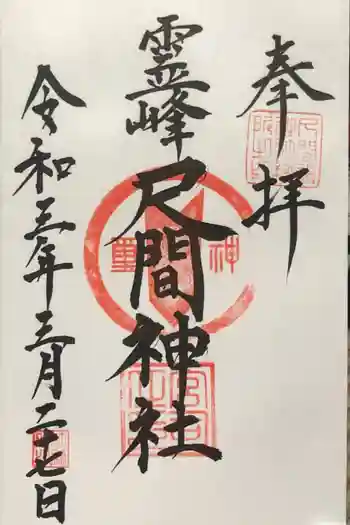 奉拝
霊峰
尺間神社
令和三年三月二十七日